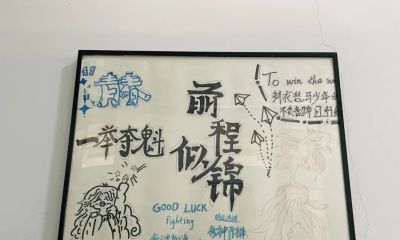 青春
一举夺魁
前程似锦
To win the
鲜衣怒马少年时
不负韶华且行
GOOD LUCK
fighting